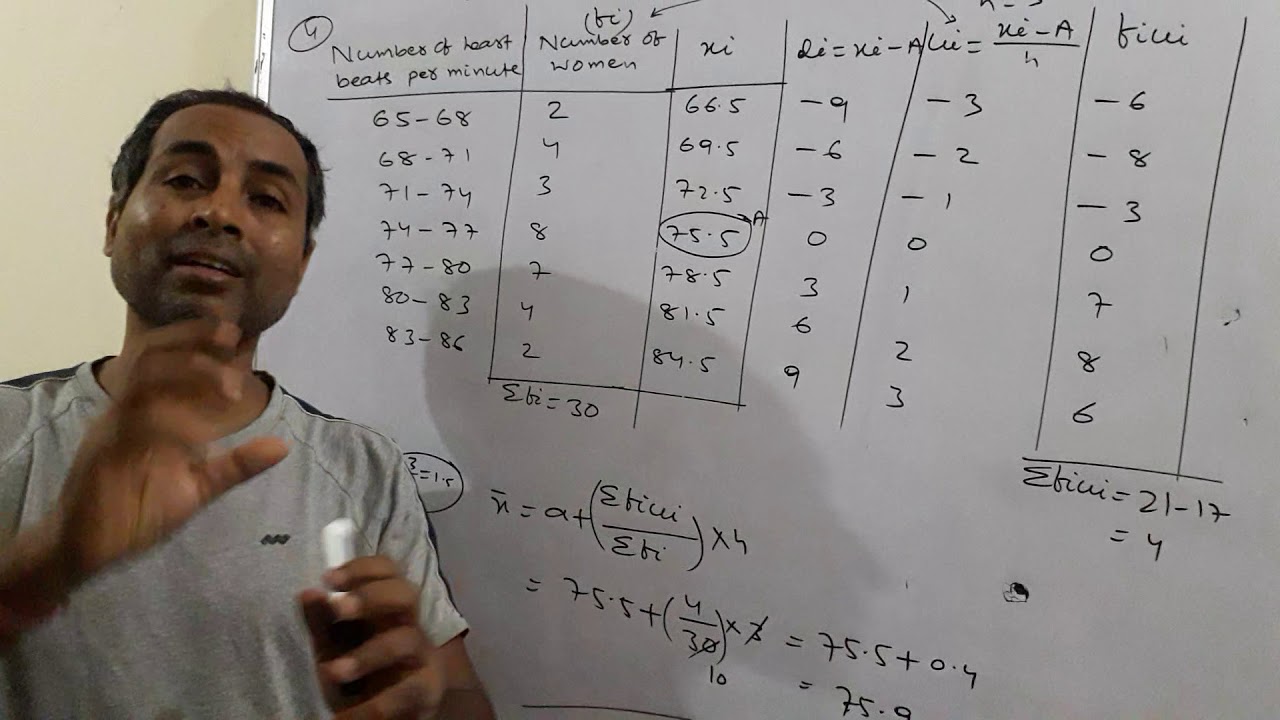 4
Number of heart beats per minute | (fi) Number of women | xi | di = xi - A | ui = xi - A / h | fiui
65-68 | 2 | 66.5 | -9 | -3 | -6
68-71 | 4 | 69.5 | -6 | -2 | -8
71-74 | 3 | 72.5 | -3 | -1 | -3
74-77 | 8 | 75.5 → A | 0 | 0 | 0
77-80 | 7 | 78.5 | 3 | 1 | 7
80-83 | 4 | 81.5 | 6 | 2 | 8
83-86 | 2 | 84.5 | 9 | 3 | 6
Σfi = 30
Σfiui = 21-17
= 4
3/2 = 1.5
x̄ = a + (Σfiui / Σfi) × h
= 75.5 + (4 / 30) × 3 = 75.5 + 0.4
10
= 75.9